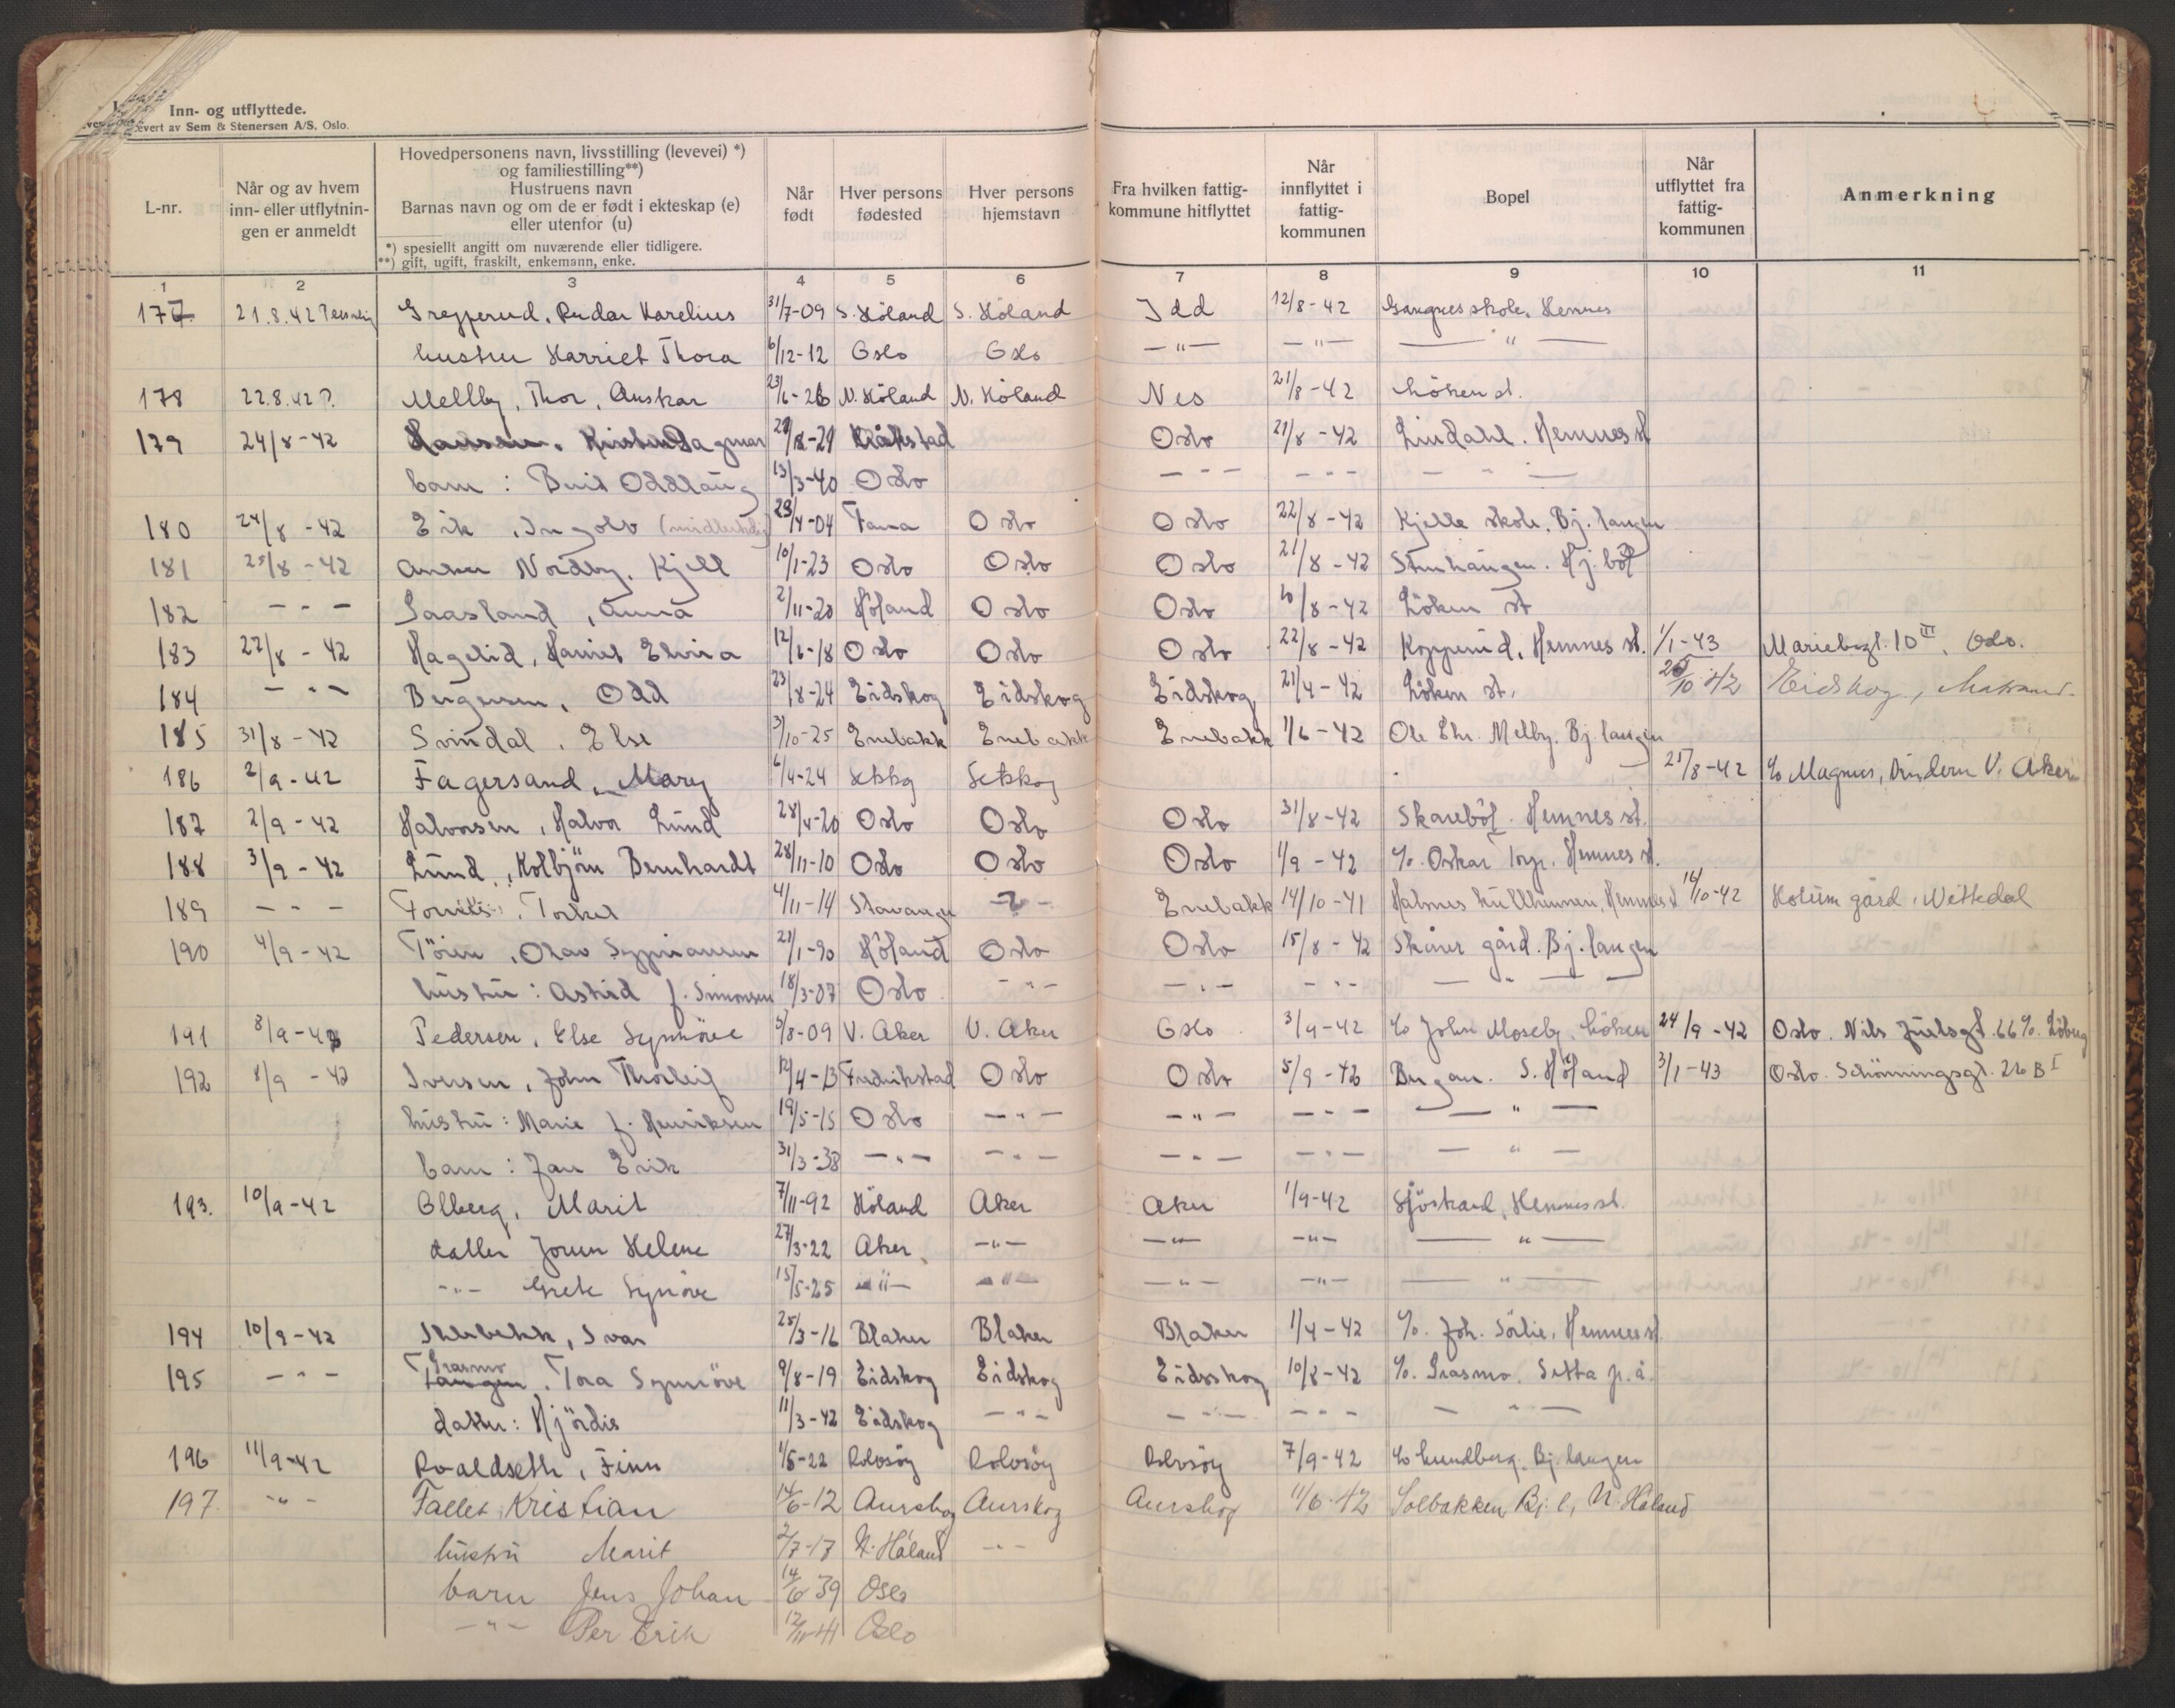 Inn- og utflyttede.
evert av Sem & Stenersen A/S, Oslo.
L-nr. | Når og av hvem inn- eller utflytnin-gen er anmeldt | Hovedpersonens navn, livsstilling (levevei) *) og familiestilling**) Hustruens navn Barnas navn og om de er født i ekteskap (e) eller utenfor (u) *) spesiellt angitt om nuværende eller tidligere. **) gift, ugift, fraskilt, enkemann, enke. | Når født | Hver persons fødested | Hver persons hjemstavn | Fra hvilken fattig-kommune hitflyttet | Når innflyttet i fattig-kommunen | Bopel | Når utflyttet fra fattig-kommunen | Anmerkning
1 2 3 4 5 6 7 8 9 10 11
177. 21.8.42 Grepperud, Reidar Karelius 31/7-09 S. Höland S. Höland Idd 12/8-42 Gangnes skole, Hemnes
hustru Harriet Thora 6/12-12 Oslo Oslo —"— —"— —"—
178 22.8.42 P. Mellby, Thor, Anskar 23/6-26 N. Höland N. Höland Nes 21/8-42 Löken st.
179 24/8-42 Hansen, Kirsten Dagmar 29/8-21 Kråkstad Oslo 21/8-42 Lindahl. Hemnes st
barn: Berit Oddlaug 13/3-40 Oslo —"— —"— —"—
180 24/8-42 Erik, Ingolv (midlertidig) 23/4-04 Fana Oslo Oslo 22/8-42 Kjelle skole, Bj. langen
181 25/8-42 Anker Nordby, Kjell 10/1-23 Oslo Oslo Oslo 21/8-42 Stenhaugen. Hj. böl
182 —"— Saasland, Anna 2/11-20 Höland Oslo Oslo 10/8-42 Löken st
183 22/8-42 Hagelid, Harriet Elvira 12/6-18 Oslo Oslo Oslo 22/8-42 Kopperud, Hemnes st. 1/1-43 Ariebogt. 10 III, Oslo.
184 —"— Bergersen, Odd 23/8-24 Eidskog Eidskog Eidskog 21/4-42 Löken st. 25/10 42 Eidskog, Matrand.
185 31/8-42 Svindal, Else 3/10-25 Enebakk Enebakk Enebakk 1/6-42 Ole Chr. Melby. Bj. langen
186 2/9-42 Fagersand, Mary 6/4-24 Setskog Setskog 25/8-42 c/o Magnus, Vindern V. Aker
187 2/9-42 Halvorsen, Halvor Lund 28/4-20 Oslo Oslo Oslo 31/8-42 Skareböl. Hemnes st.
188 3/9-42 Lund, Kolbjörn Bernhardt 28/11-10 Oslo Oslo Oslo 1/9-42 c/o. Oskar Torp. Hemnes st.
189 —"— Torkel 4/11-14 Stavanger —?— Enebakk 14/10-41 Halsnes Hemnes st 16/10-42 Holum gård, Nittedal
190 4/9-42 Tören, Olav Syprianssen 21/1-90 Höland Oslo Oslo 15/8-42 Skårer gård. Bj. langen
hustru: Astrid f. Simonsen 18/3-07 Oslo —"— —"— —"— —"—
191 8/9-42 Pedersen, Else Synnöve 5/8-09 V. Aker V. Aker Oslo 3/9-42 c/o John Moseby, Löken 24/9-42 Oslo. Nils Juelsgt. 66 c/o. Löberg
192 8/9-42 Iversen, John Thorleif 12/4-13 Fredrikstad Oslo Oslo 5/9-42 Bergan. S. Höland 3/1-43 Oslo. Schönningsgt. 26 B I
hustru: Marie f. Henriksen 19/5-15 Oslo —"— —"— —"— —"—
barn: Jan Erik 31/3-38 —"— —"— —"— —"— —"—
193. 10/9-42 Olberg, Marit 7/11-92 Höland Aker Aker 1/9-42 Sjöstrand, Hemnes st.
datter Jorun Helene 27/3-22 Aker —"— —"— —"— —"—
—"— Grete Synöve 15/5-25 —"— —"— —"— —"— —"—
194 10/9-42 Skrebekk, Ivar 25/3-16 Blaker Blaker Blaker 1/4-42 c/o. Joh. Sörlie, Hemnes st
195 —"— Tangen Grasmo, Tora Synnöve 9/8-19 Eidskog Eidskog Eidsskog 10/8-42 c/o. Grasmo. Setta p.å.
datter: Hjördis 11/3-42 Eidskog —"— —"— —"— —"—
196 11/9-42 Roaldseth, Finn 1/5-22 Rolvsöy Rolvsöy Rolvsöy 7/9-42 c/o Lundberg, Bj. langen
197. —"— Fallet, Kristian 14/6-12 Aurskog Aurskog Aurskog 11/6-42 Solbakken, Bj. l, N. Höland
hustru Marit 2/7-17 N. Höland —"—
barn Jens Johan 14/6 39 Oslo
—"— Per Erik 12/11-41 Oslo